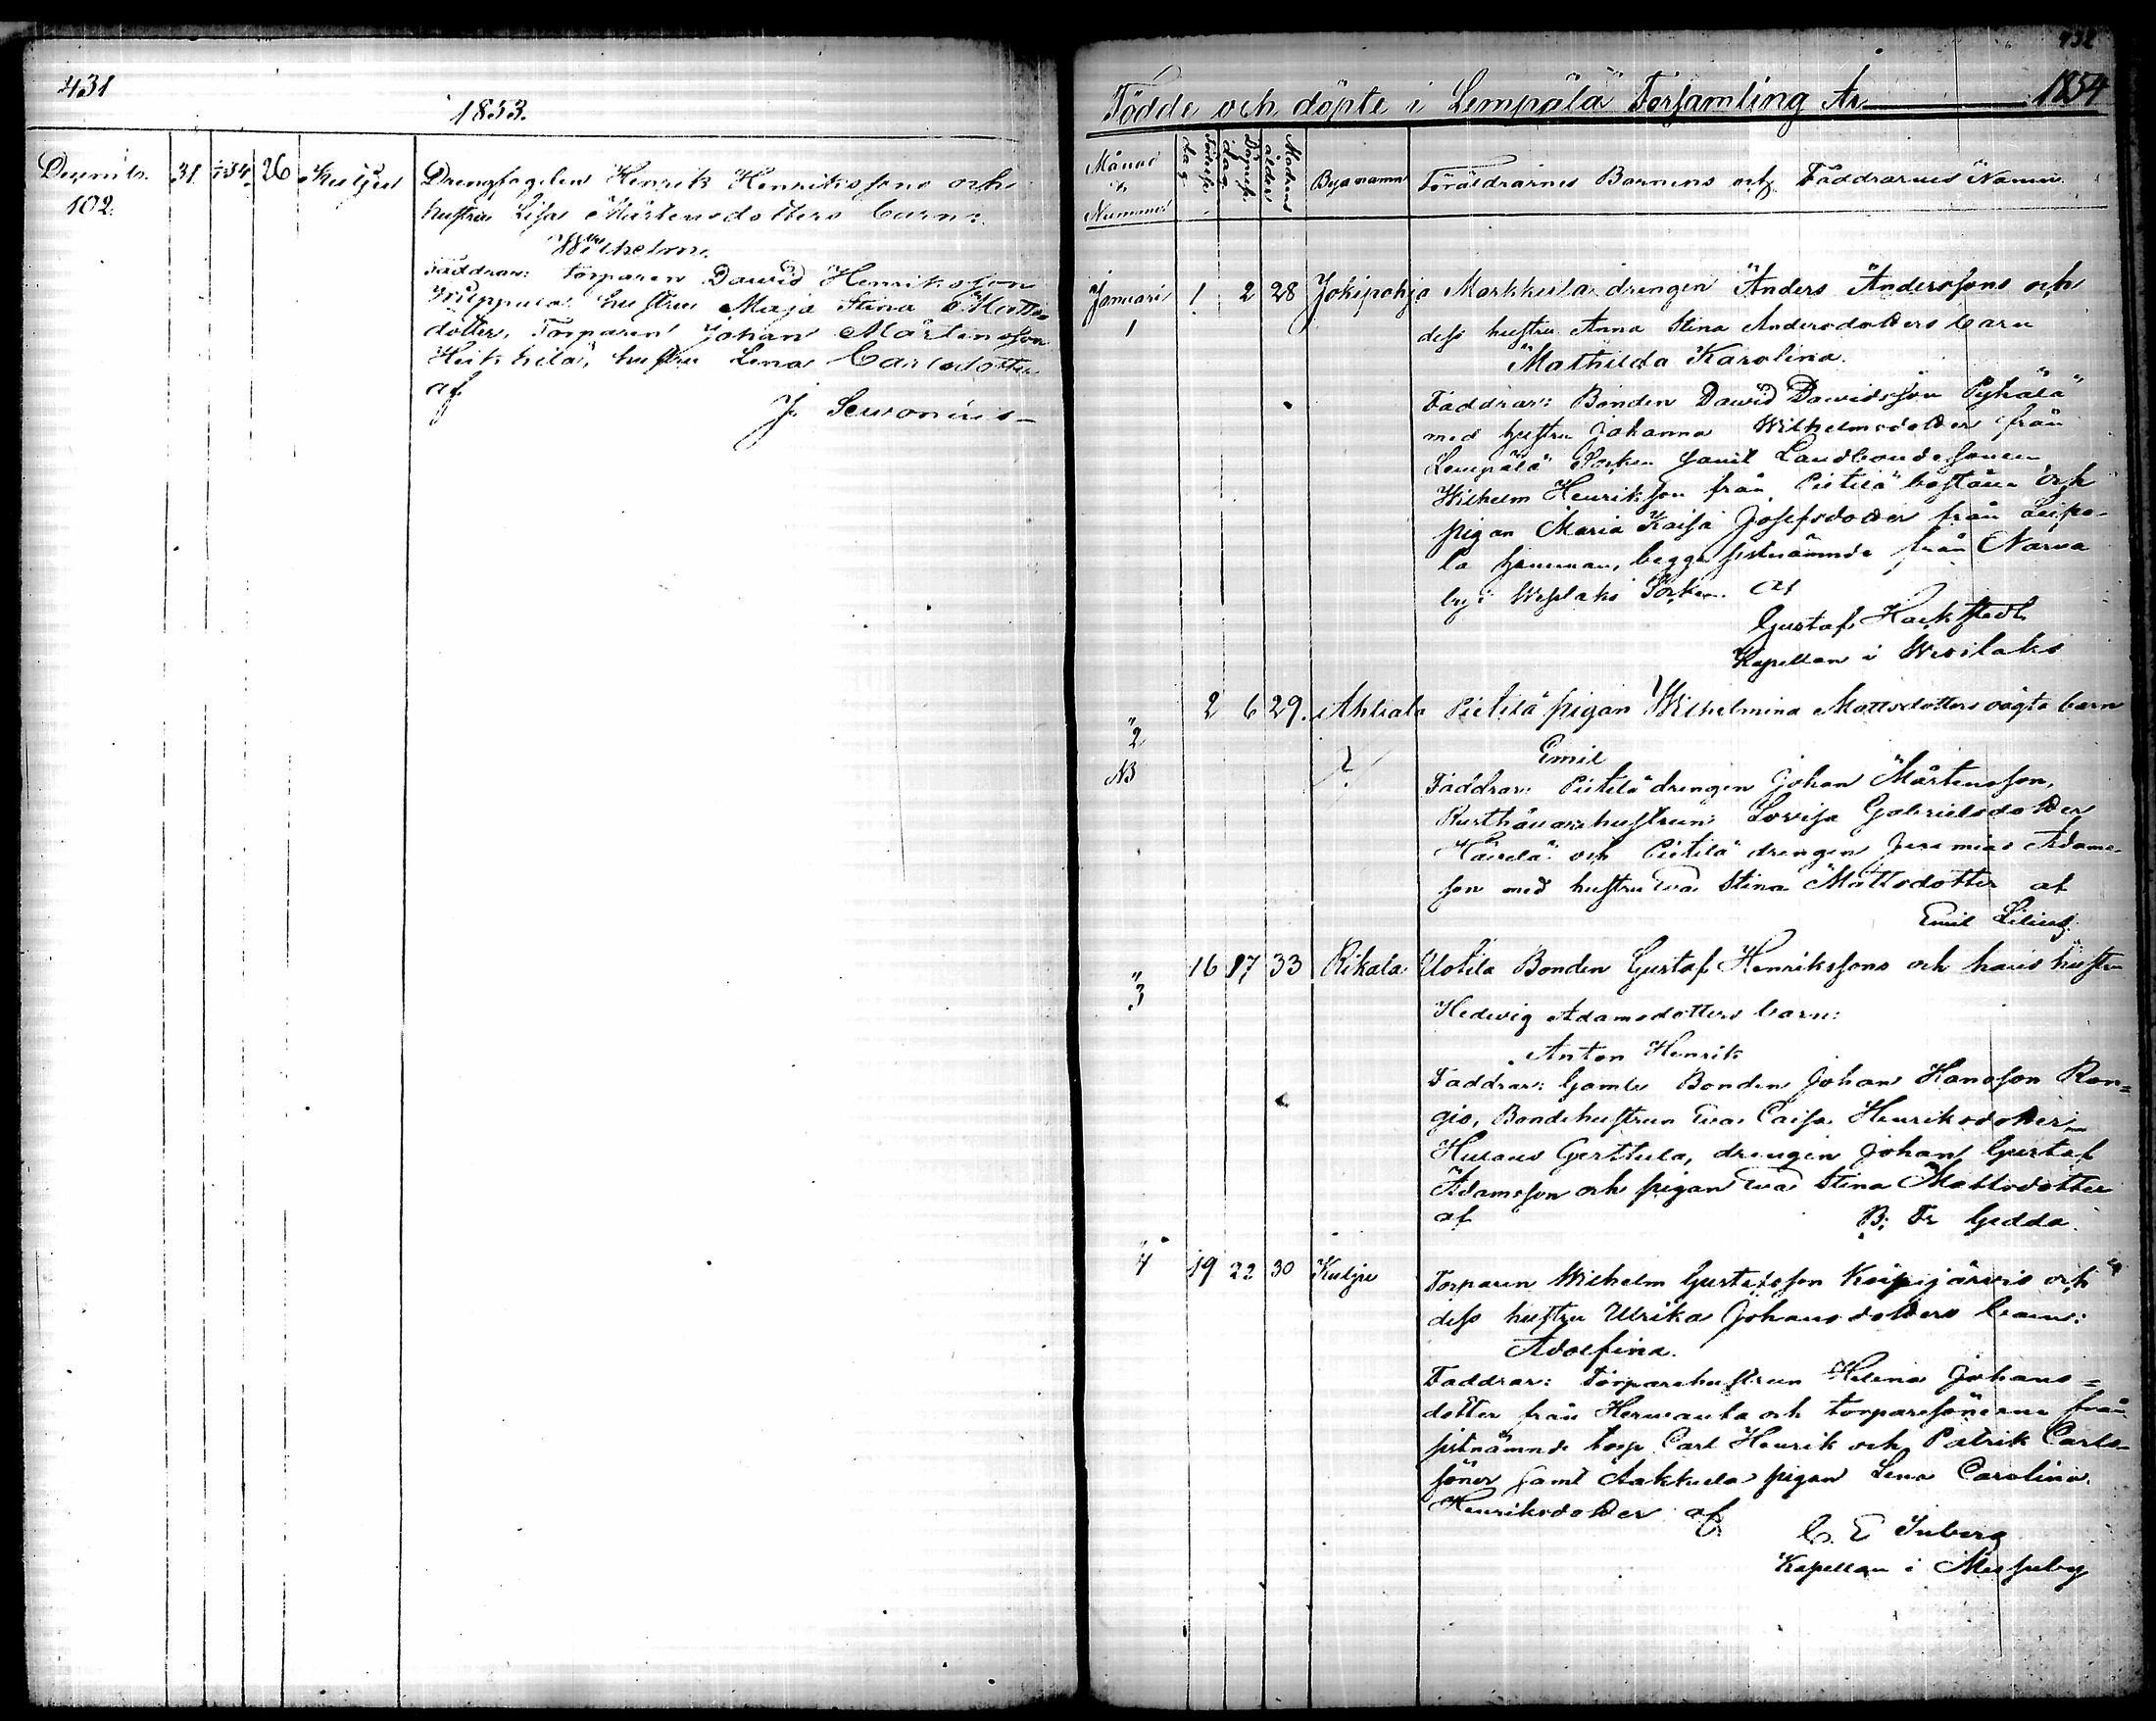 431
1853.
Decemb. 31. 26 Kuljus Drengfogden Henrik Henrikssons och
102. hustru Lisa Mårtensdotters barn:
Wilhelm.
Faddrar: torparen David Henriksson
hustru Maja Stina Matts-
dotter, Torparen Johan Mårtensson
Heikkilä, hustru Lena Carlsdotter
af
J. Servonius
432
Födde och döpte i Lempälä Församling År 1854
Månad & Nummer Födelse dag Döpnjs. dag Modrens ålder Byanamn Föräldrarnes Barnens och Faddrarnes Namn.
Januari 1 2 28 Jokipohja Markkula drengen Anders Anderssons och
1 dess hustru Anna Stina Andersdotters barn
Mathilda Karolina.
Faddrar: Bonden David Davidsson Pyhälä
med hustru Johanna Wilhelmsdotter från
Lempälä Socken samt Landbondesonen
Wilhelm Henriksson från Pietilä boställe och
pigan Maria Kaisa Josefsdotter från Leipo-
la hemman, begge sistnämnde från Narva
by i Wesilaks Socken af
Gustaf Hackstedt
Kapellan i Wesilaks
" 2 6 29. Ahtiala Pietilä pigan Wilhelmina Mattsdotters oägta barn
2 Emil
NB ? Faddrar: Pietilä drengen Johan Mårtensson,
Rusthållarehustrun Lovisa Gabrielsdotter
och Pietilä drengen Jeremias Adams-
son med hustru Eva Stina Mattsdotter af
Emil Lilius
" 16 17 33 Rikala Uotila Bonden Gustaf Henrikssons och hans hustru
3 Hedvig Adamsdotters barn:
Anton Henrik
Faddrar: Gamle Bonden Johan Hansson Ron=
gis, Bondehustrun Eva Caisa Henriksdotter
Gerttula, drengen Johan Gustaf
Adamsson och pigan Eva Stina Mattsdotter
af B: Fr Gedda.
" 4 19 22 30 Kulju Torparen Wilhelm Gustafsson Keipijärvis och
dess hustru Ulrika Johansdotters barn:
Adolfina.
Faddrar: Torparehustrun Helena Johans=
dotter från och torparesönerne från
sistnämnde torp Carl Henrik och Patrik Carls-
söner samt Aakkula pigan Lena Carolina
Henriksdotter af
C. E Inberg
Kapellan i Messuby